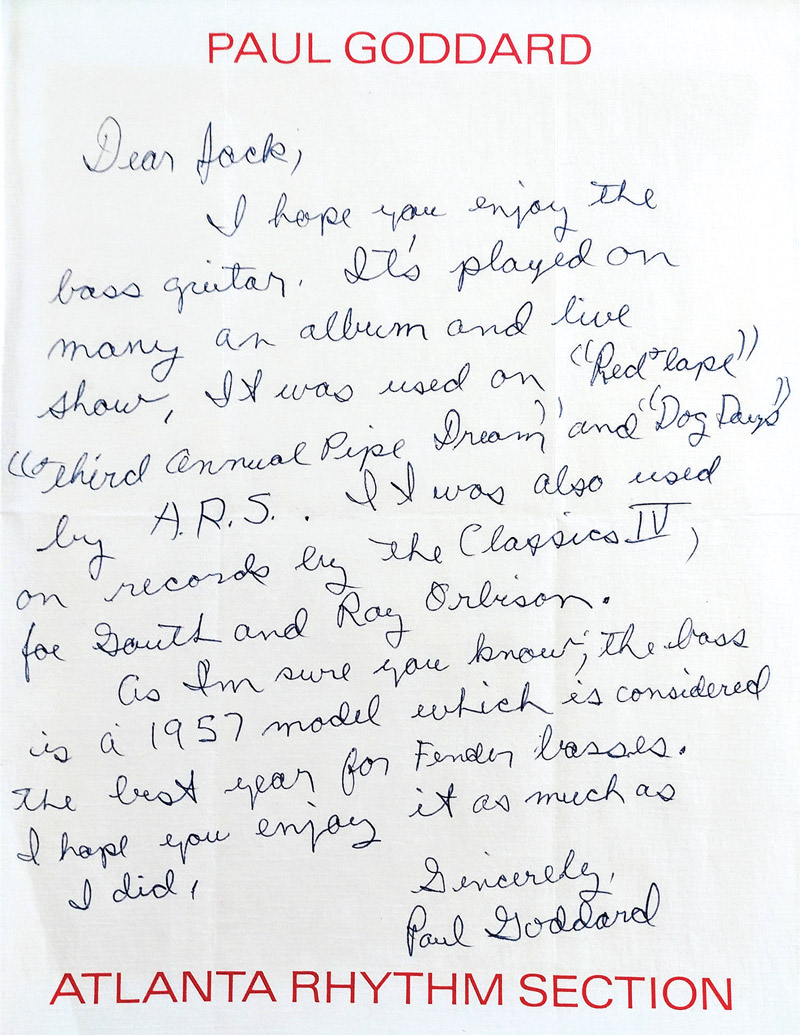 PAUL GODDARD
Dear Jack,
I hope you enjoy the
bass guitar. It's played on
many an album and live
show, It was used on "Red Tape"
"Third Annual Pipe Dream" and "Dog Days"
by A.R.S. . I I was also used
on records by the Classics IV,
Joe South and Roy Orbison.
As I'm sure you know, the bass
is a 1957 model which is considered
the best year for Fender basses.
I hope you enjoy it as much as
I did,
Sincerely,
Paul Goddard
ATLANTA RHYTHM SECTION